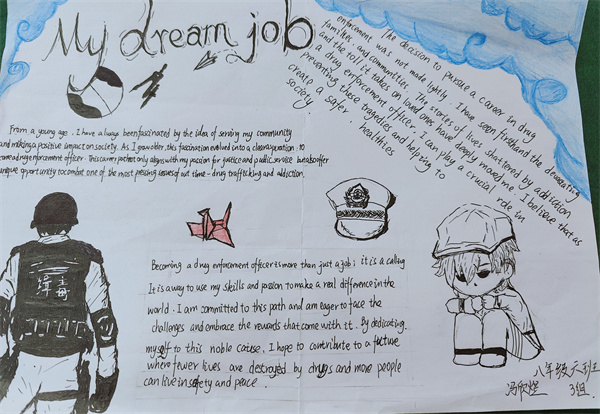 My dream job
The decision to pursue a career in drug
enforcement was not made lightly. I have seen firsthand the devastating
families and communities. The stories of lives shattered by addiction
and the toll it takes on loved ones have deeply moved me. I believe that as
a drug enforcement officer, I can play a crucial role in
preventing these tragedies and helping to
create a safer, healthier
society
From a young age, I have always been fascinated by the idea of serving my community
and making a positive impact on society. As I grew older, this fascination evolved into a clear ambition: to
come a drug enforcement officer. This career path not only aligns with my passion for justice and public service but also offer
unique opportunity to combat one of the most pressing issues of out time - drug trafficking and addiction.
Becoming a drug enforcement officer is more than just a job; it is a calling
It is a way to use my skills and passion to make a real difference in the
world. I am committed to this path and am eager to face the
challenges and embrace the rewards that come with it. By dedicating
myself to this noble cause, I hope to contribute to a future
where fewer lives are destroyed by drugs and more people
can live in safety and peace.
缉毒
八年级六班
3组